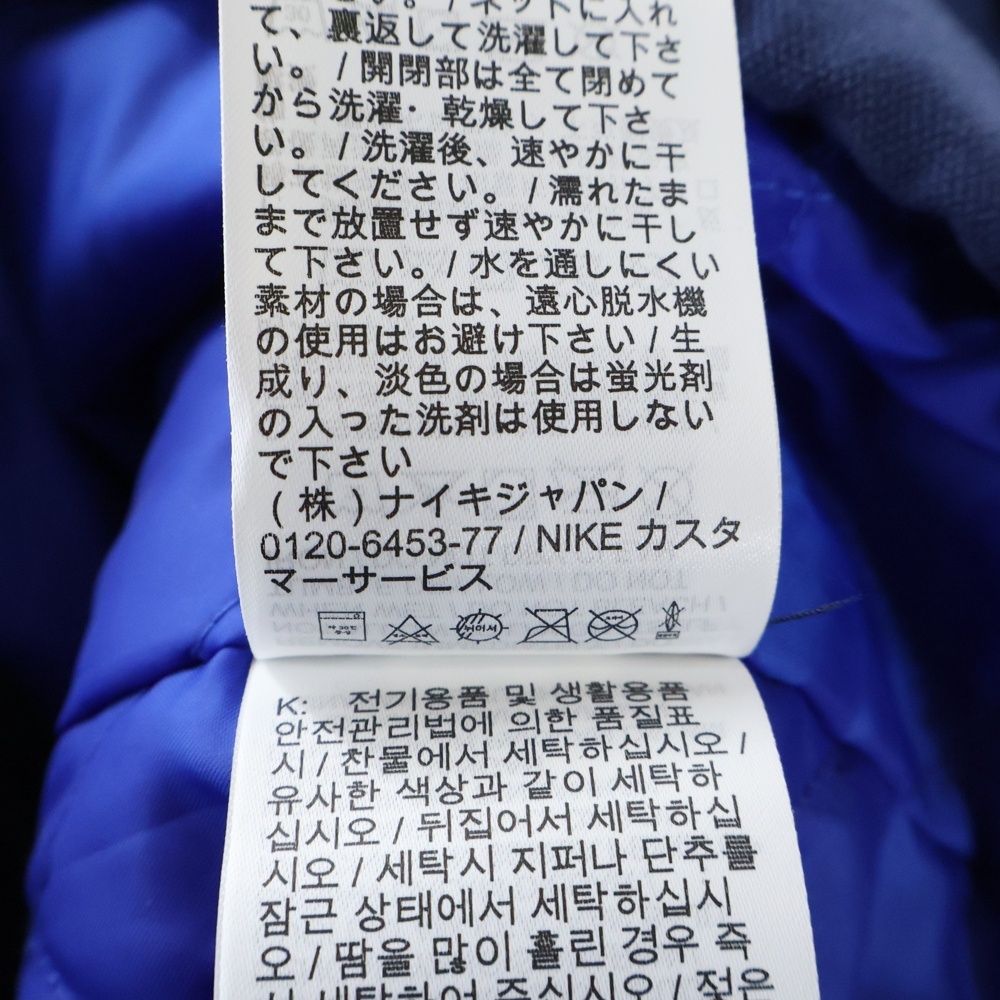 い。/ ネットに入れ
て、裏返して洗濯して下さ
い。/ 開閉部は全て閉めて
から洗濯・乾燥して下さ
い。/ 洗濯後、速やかに干
してください。/ 濡れたま
まで放置せず速やかに干し
て下さい。/ 水を通しにくい
素材の場合は、遠心脱水機
の使用はお避け下さい / 生
成り、淡色の場合は蛍光剤
の入った洗剤は使用しない
で下さい
(株) ナイキジャパン /
0120-6453-77 / NIKE カスタ
マーサービス
K: 전기용품 및 생활용품
안전관리법에 의한 품질표
시 / 찬물에서 세탁하십시오 /
유사한 색상과 같이 세탁하
십시오 / 뒤집어서 세탁하십
시오 / 세탁시 지퍼나 단추를
잠근 상태에서 세탁하십시
오 / 땀을 많이 흘린 경우 즉
시 세탁하여 주십시오 / 젖은